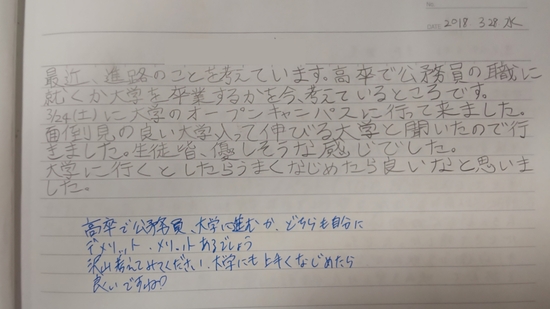 No.
DATE 2018 3.28 水
最近、進路のことを考えています。高卒で公務員の職に
就くか大学を卒業するかを今、考えているところです。
3/24(土)に大学のオープンキャンパスに行って来ました。
面倒見の良い大学入って伸びる大学と聞いたので行
きました。生徒皆、優しそうな感じでした。
大学に行くとしたらうまくなじめたら良いなと思いま
した。
高卒で公務員、大学に進むか、どちらも自分に
デメリット・メリットあるでしょう
沢山考えてみてください、大学にも上手くなじめたら
良いですね?